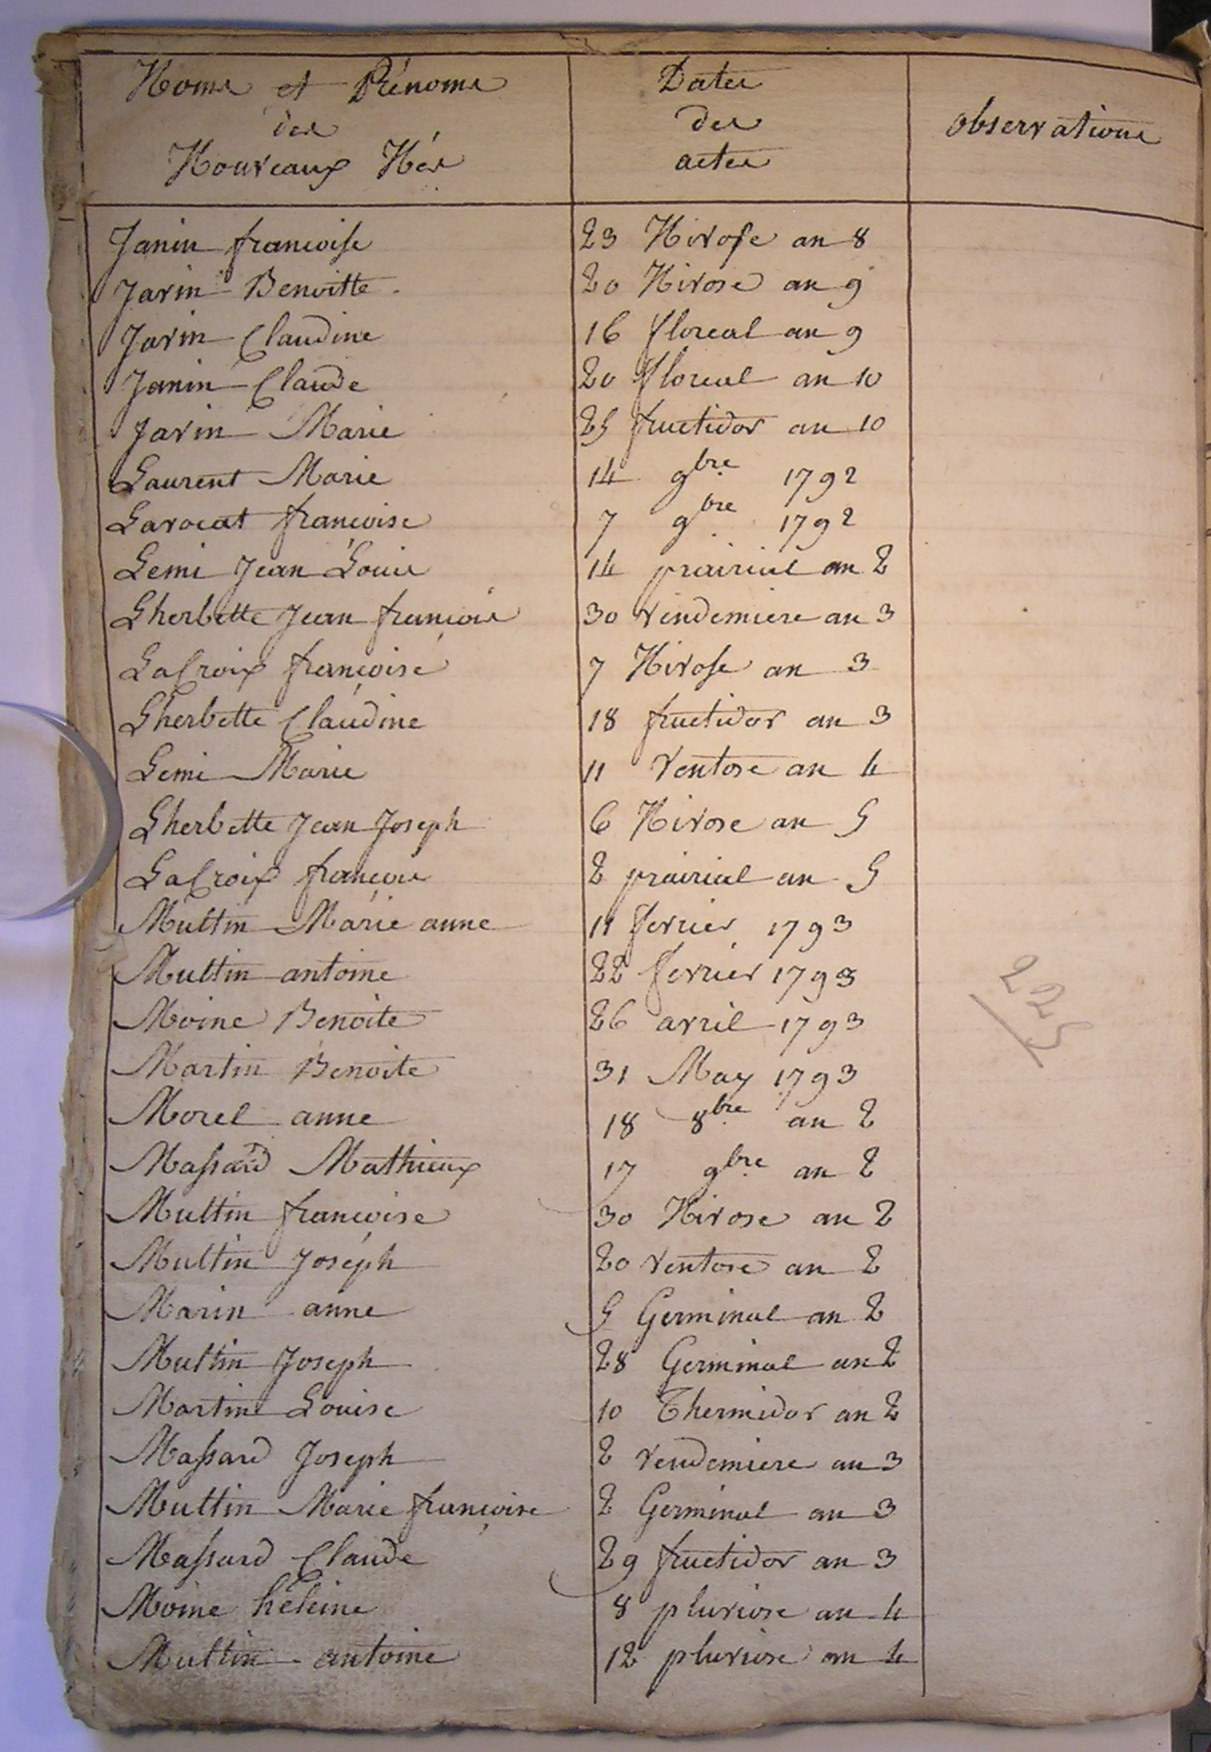 Noms et Prénoms
des
Nouveaux Nés
Dates
des
actes
observations
Janin françoise 23 Nivose an 8
Jarin Benoitte 20 Nivose an 9
Jarin Claudine 16 floreal an 9
Janin Claude 20 floreal an 10
Jarin Marie 25 fructidor an 10
Laurent Marie 14 9bre 1792
Lavocat françoise 7 9bre 1792
Lemi Jean Louis 14 prairial an 2
Lherbette Jean françois 30 vindemiere an 3
LaCroix françoise 7 Nivose an 3
Lherbette Claudine 18 fructidor an 3
Lemi Marie 11 Ventose an 4
Lherbette Jean Joseph 6 Nivose an 5
LaCroix françois 2 prairial an 5
Multin Marie anne 11 fevrier 1793
Multin antoine 22 fevrier 1793
Moine Benoite 26 avril 1793
Martin Benoite 31 May 1793
Morel anne 18 8bre an 2
Massard Mathieux 17 9bre an 2
Multin françoise 30 Nivose an 2
Multin Joseph 20 ventose an 2
Marin anne 5 Germinal an 2
Multin Joseph 28 Germinal an 2
Martin Louise 10 Thermidor an 2
Massard Joseph 2 vendemiere an 3
Multin Marie françoise 2 Germinal an 3
Massard Claude 29 fructidor an 3
Moine héléine 8 pluviose an 4
Multin antoine 12 pluviose an 4
225